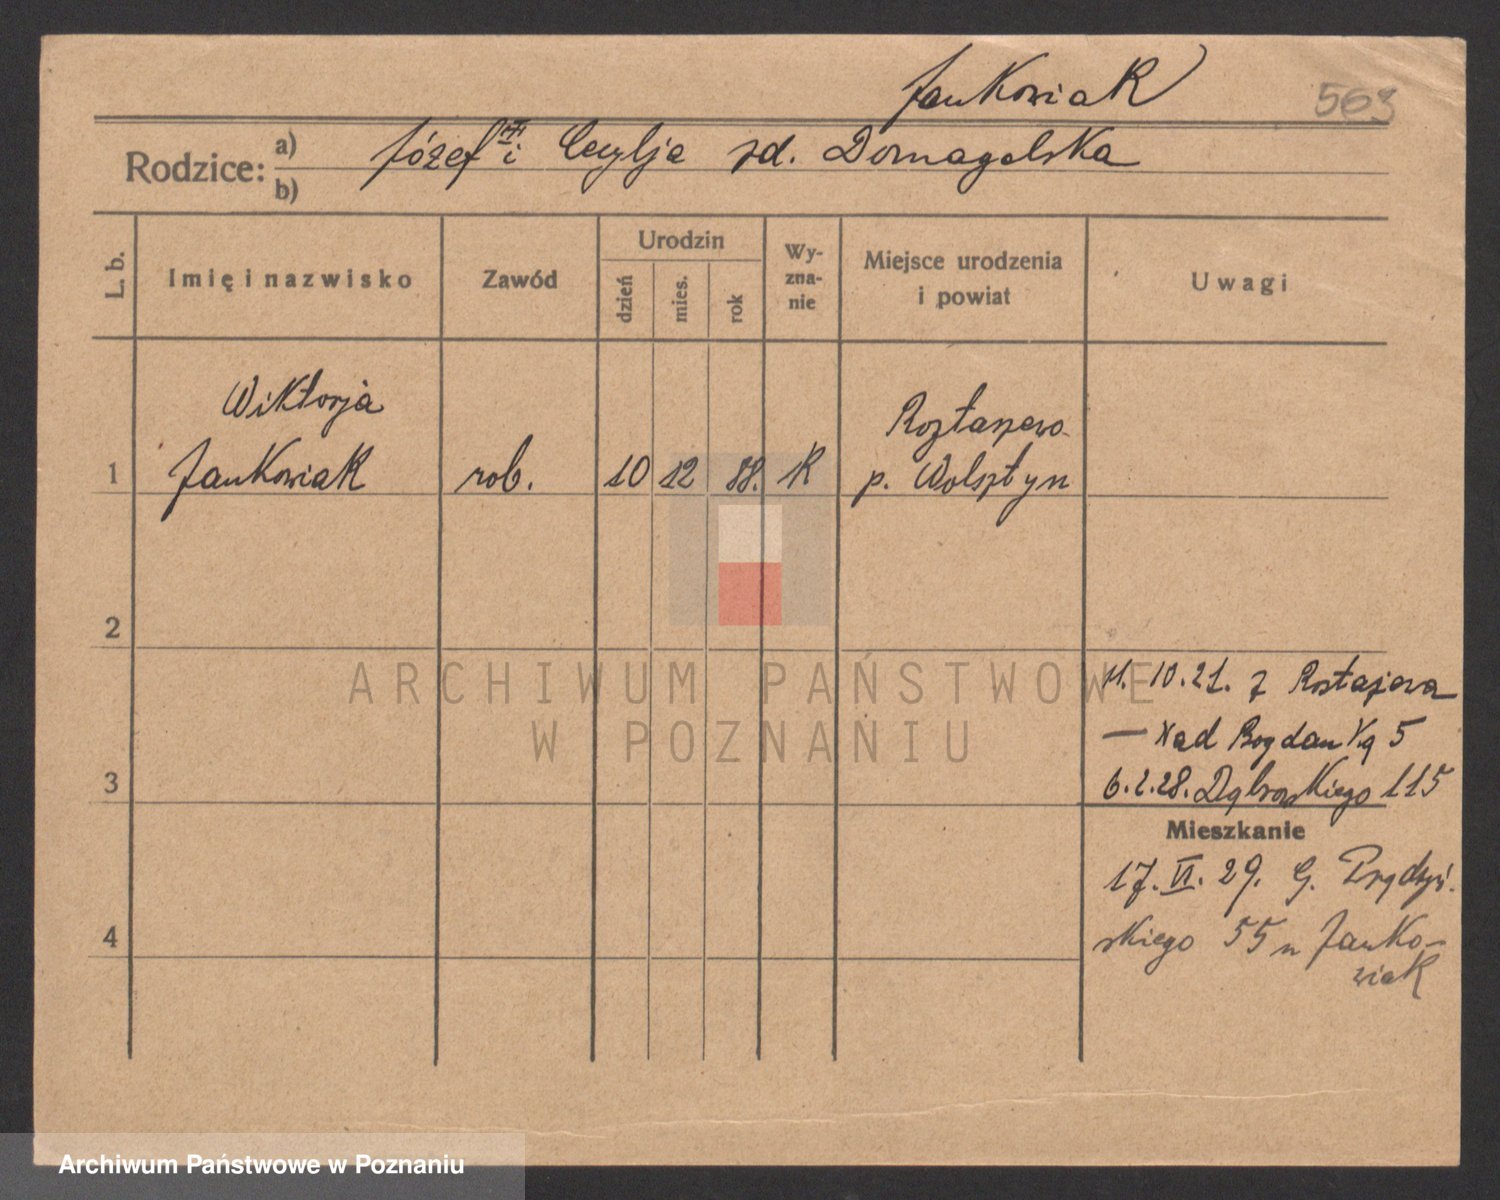 Jankowiak
563
Rodzice: a) Józef i Cecylja zd. Domagalska
b)
L. b.
Imię i nazwisko
Zawód
Urodzin
dzień
mies.
rok
Wy-
zna-
nie
Miejsce urodzenia
i powiat
Uwagi
1
Wiktorja
Jankowiak
rob.
10
12
88.
K
p. Wolsztyn
2
3
11. 10.21. z
— Nad Bogdanką 5
6.2.28. Dąbrowskiego 115
Mieszkanie
17. VI. 29. G. Prądzyń-
skiego 55 u Janko-
wiak
4
ARCHIWUM PAŃSTWOWE
W POZNANIU
Archiwum Państwowe w Poznaniu